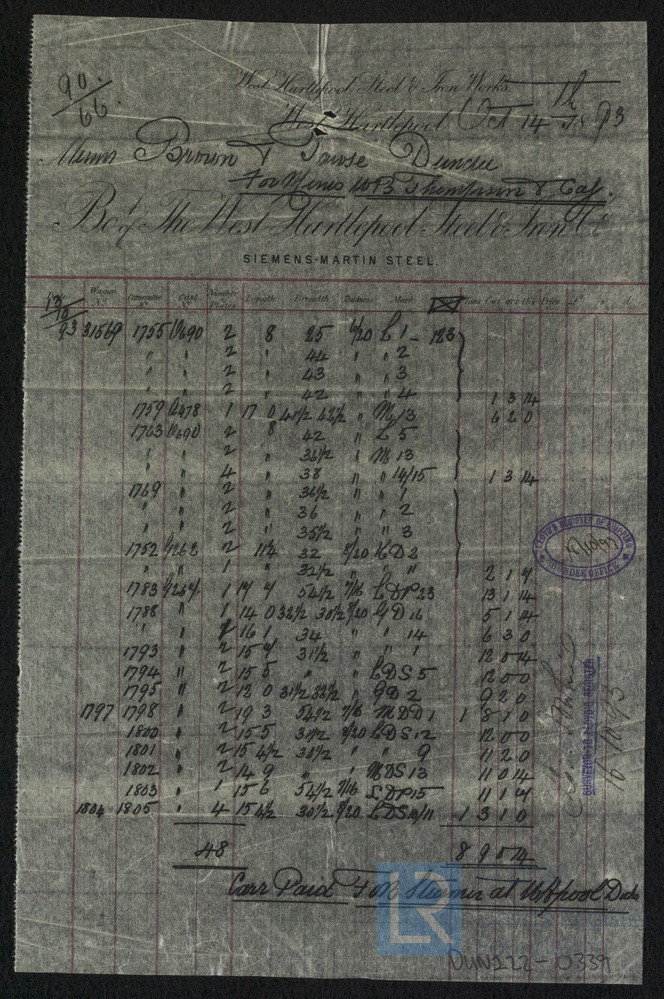 90.
66.
West Hartlepool Steel & Iron Works
West Hartlepool Oct 14th 1893
Messrs Brown & Tawse Dundee
For Messrs W B Thompson & Coy.
Bot of The West Hartlepool Steel & Iron Co Ld
SIEMENS-MARTIN STEEL.
Wagon No. Consecutive No. Cast No. Number Plates Length Breadth Thickness Mark Tons Cwt. qrs. lbs. Price £ s d
13/10/93 31569 1755 2 8 25 6/20 L 1 123
" " 2 " 44 " " 2
" " 2 " 43 " " 3
" " 2 " 42 " " 4 1 3 14
1759 1 17 0 41 1/2 42 1/2 " M 13 6 2 0
1763 2 8 42 " L 5
" " 2 " 36 1/2 " M 13
" " 4 " 38 " " 14/15 1 3 14
1769 " 2 " 36 1/2 " " 1
" " 2 " 36 " " 2
" " 2 " 35 1/2 " " 3
1752 2 11 4 32 8/20 D 2
" " 1 " 32 1/2 " " " 2 1 4
1783 1 54 1/2 7/16 LDP 23 13 1 14
1788 " 1 14 0 30 1/2 D 16 5 1 14
" " 16 1 34 " " 14 6 3 0
1793 " 2 15 4 31 1/2 " " 1 12 0 14
1794 " 2 15 5 " " LDS 5 12 0 0
1795 " 2 12 0 31 1/2 32 1/2 " D 2 9 2 0
1797 1798 " 2 19 3 54 1/2 7/16 MDD 1 1 8 1 0
1800 " 2 15 5 31 1/2 8/20 LDS 12 12 0 0
1801 " 2 15 4 1/2 30 1/2 " " 9 11 2 0
1802 " 2 14 9 " " DS 13 11 0 14
1803 " 1 15 6 54 1/2 7/16 LDP 15 11 1 4
1804 1805 " 4 15 4 1/2 30 1/2 8/20 LDS 10/11 1 3 1 0
48 8 9 0 14
Carr Paid F.O.B. Steamer at W Hpool Docks
LLOYD'S REGISTER OF SHIPPING
DUNDEE OFFICE
SURVEYOR TO LLOYD'S REGISTER
16/10/93
LR
DUN122-0339